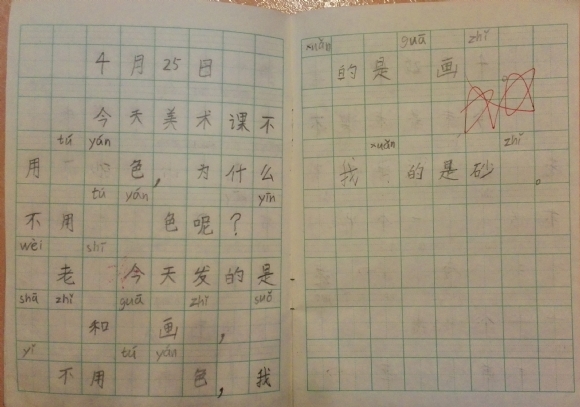 4月25日
今天美术课不
tú yán
用 色，为什么
tú yán yīn
不用 色呢？
wèi shī
老 今天发的是
shā zhǐ guā zhǐ suǒ
和 画 ，
yǐ tú yán
不用 色，我
xuǎn guā zhǐ
的是画
xuǎn zhǐ
我 的是砂 。